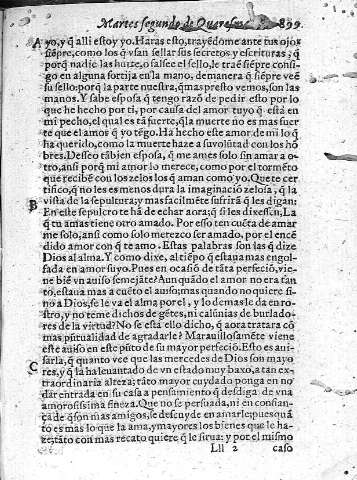 Martes segundo de Quaresma. 899
A yo, y q̃ alli estoy yo. Haras esto, trayẽdome ante tus ojos
siẽpre, como los q̃ vsan sellar sus secretos y escrituras, q̃
porq̃ nadie las hurte, o falsee el sello, le traẽ siẽpre consi-
go en alguna sortija en la mano, demanera q̃ siẽpre veẽ
su sello: porq̃ la parte nuestra, q̃ mas presto vemos, son las
manos. Y sabe esposa q̃ tengo razõ de pedir esto por lo
que he hecho por ti, por causa del amor tuyo q̃ está en
mi pecho, el qual es tã fuerte, q̃ la muerte no es mas fuer
te que el amor q̃ yo tẽgo. Ha hecho este amor de mi lo q̃
ha querido, como la muerte haze a su volũtad con los hõ
bres. Desseo tãbien esposa, q̃ me ames solo sin amar a o-
tro, assi porq̃ mi amor lo merece, como por el tormẽto
que recibẽ con los zelos los q̃ aman como yo. Que te cer
tifico, q̃ no les es menos dura la imaginaciõ zelosa, q̃ la
vista de la sepultura, y mas facilmẽte sufrirá q̃ les digan:
B En este sepulcro te hã de echar aora; q̃ si les dixessen, La
q̃ tu amas tiene otro amado. Por esso ten cuẽta de amar
me solo, ansi como solo merezco ser amado, por el encẽ
dido amor con q̃ te amo. Estas palabras son las q̃ dize
Dios al alma. Y como dixe, al tiẽpo q̃ estaua mas engol-
fada en amor suyo. Pues en ocasiõ de tãta perfeciõ, vie-
ne biẽ vn auiso semejãte? Aun quãdo el amor no era tan
to, estaua mas a cuẽto el auiso; mas quando no quiere si-
no a Dios, se le va el alma por el, y lo demas le da en ro-
stro, y no teme dichos de gẽtes, ni calũnias de burlado-
res de la virtud? No se está ello dicho, q̃ aora tratara cõ
mas pũtualidad de agradarle? Marauillosamẽte viene
este auiso en este pũto de su mayor perfeciõ. Esto es aui-
sarla, q̃ quanto vee que las mercedes de Dios son mayo
C res, y q̃ la ha leuantado de vn estado muy baxo, a tan ex-
traordinaria alteza; tãto mayor cuydado ponga en no
dar entrada en su casa a pensamiento q̃ desdiga de vna
amorosissima fineza. Que no se persuada, ni en confian-
ça de q̃ son mas amigos, se descuyde en amarle; pues quã
to es mas lo que la ama, y mayores los bienes que le ha-
ze; tãto con mas recato quiere q̃ le sirua; y por el mismo
Lll 2 caso